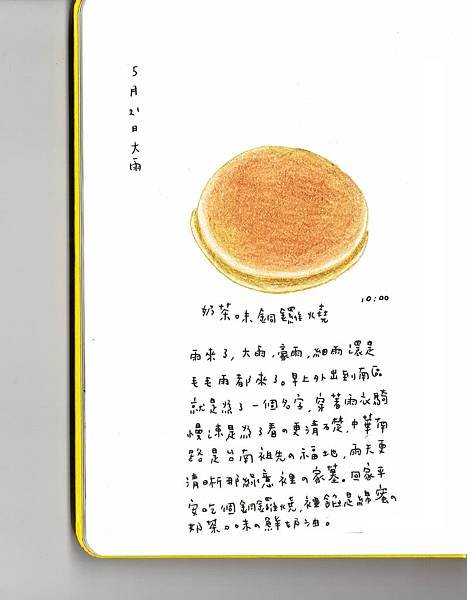 5月21日大雨
10:00
奶茶味銅鑼燒
雨來了,大雨,豪雨,細雨還是
毛毛雨都來了。早上外出到南區
就是為了一個名字,穿著雨衣騎
慢速是為了看の更清楚,中華南
路是台南祖先の福地,雨天更
清晰那綠意裡の家墓。回家平
安吃個銅鑼燒,裡餡是綿蜜の
奶茶口味の鮮奶油。